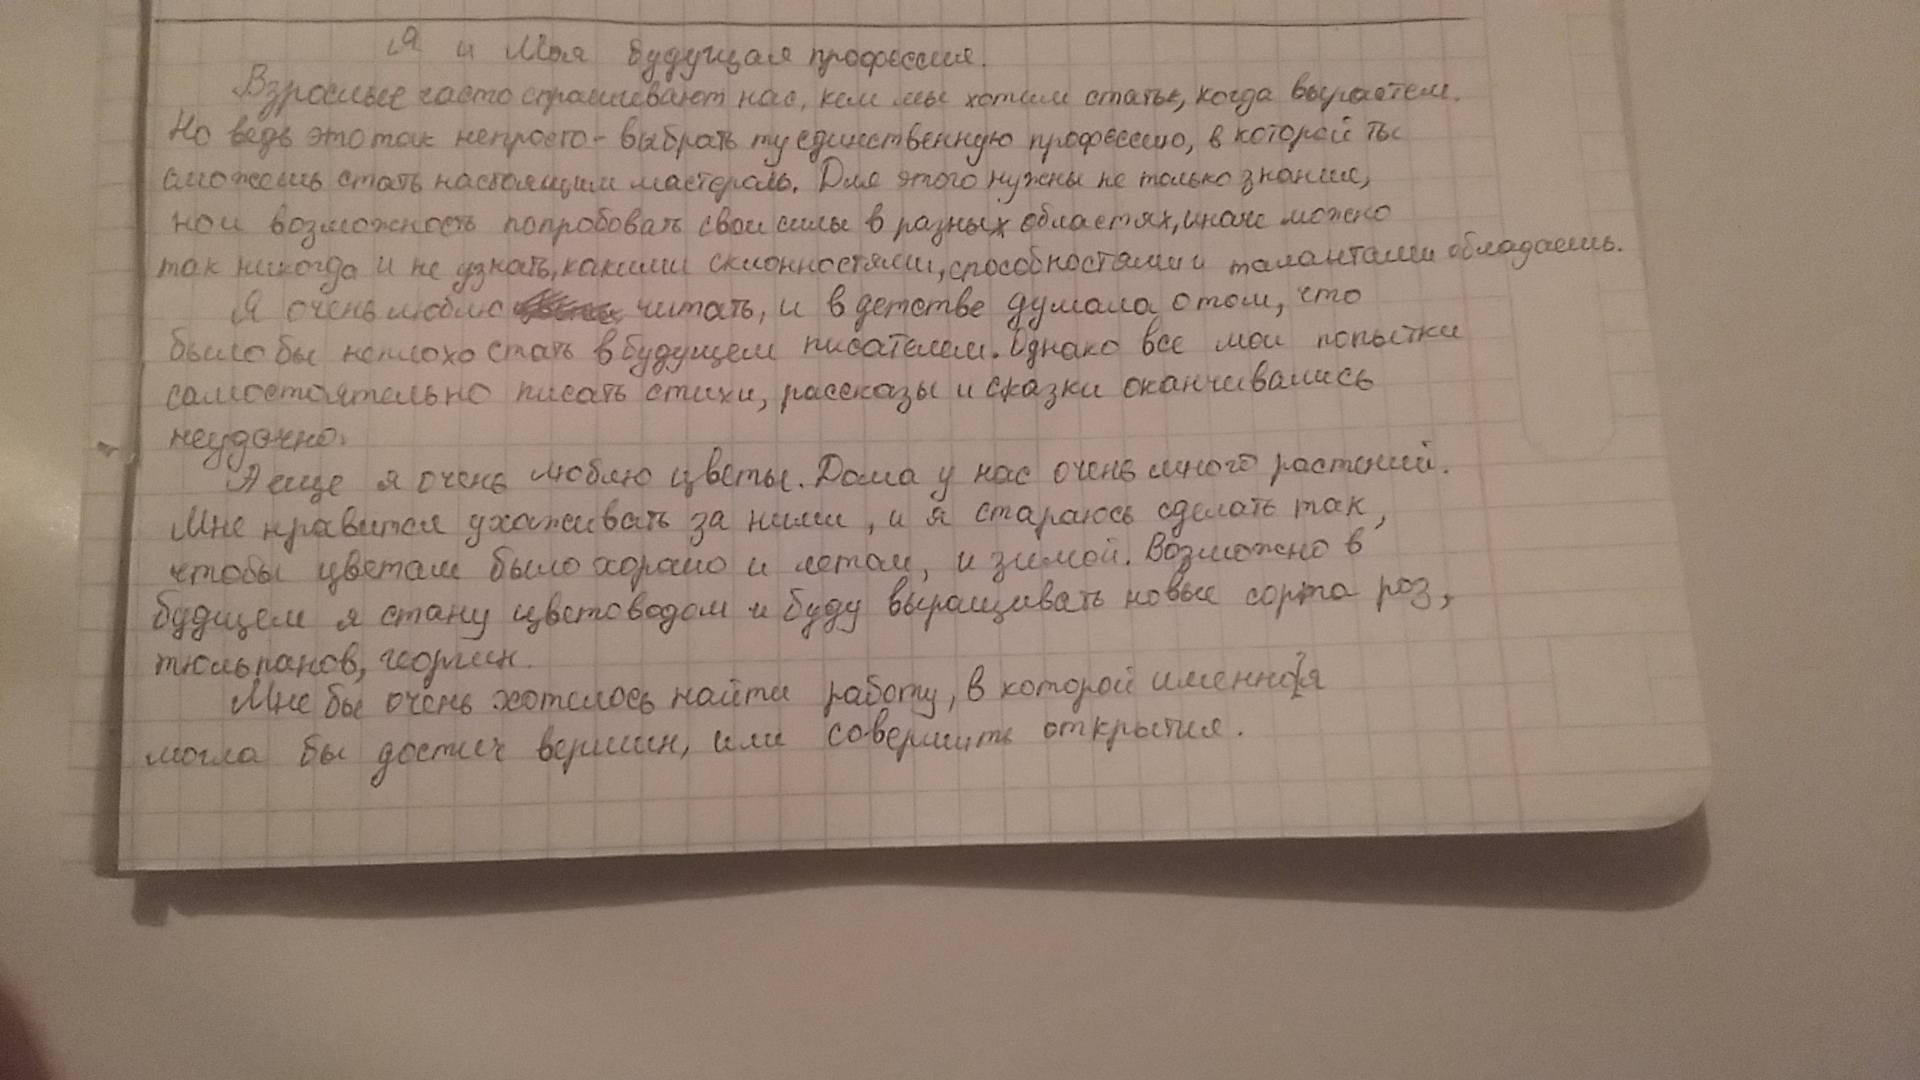 Я и Моя будущая профессия.
Взрослые часто спрашивают нас, кем мы хотим стать, когда вырастем.
Но ведь это так непросто - выбрать ту единственную профессию, в которой ты
сможешь стать настоящим мастером. Для этого нужны не только знания,
но и возможность попробовать свои силы в разных областях, иначе можно
так никогда и не узнать, какими склонностями, способностями и талантами обладаешь.
Я очень люблю читать, и в детстве думала о том, что
было бы неплохо стать в будущем писателем. Однако все мои попытки
самостоятельно писать стихи, рассказы и сказки оканчивались
неудачно.
А еще я очень люблю цветы. Дома у нас очень много растений.
Мне нравится ухаживать за ними, и я стараюсь сделать так,
чтобы цветам было хорошо и летом, и зимой. Возможно в
будщем я стану цветоводом и буду выращивать новые сорта роз,
тюльпанов, георгин.
Мне бы очень хотелось найти работу, в которой именно я
могла бы достич вершин, или совершить открытия.